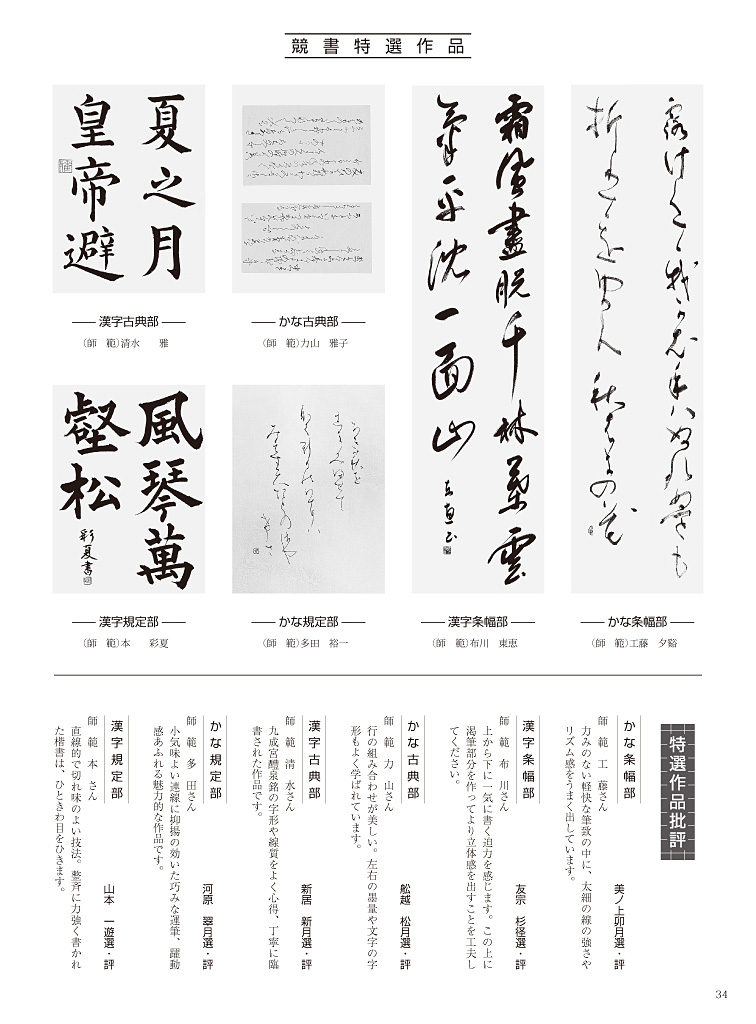 競書特選作品
夏之月
皇帝避
漢字古典部
（師　範）清水　　雅
かな古典部
（師　範）力山　雅子
霜風盡脱千林葉雲
氣平沈一面山
漢字条幅部
（師　範）布川　東恵
かな条幅部
（師　範）工藤　夕谿
風琴萬
壑松
彩夏書
漢字規定部
（師　範）本　　彩夏
かな規定部
（師　範）多田　裕一
特選作品批評
かな条幅部
美ノ上卯月選・評
師　範　工　藤さん
力みのない軽快な筆致の中に、太細の線の強さや
リズム感をうまく出しています。
漢字条幅部
友宗　杉径選・評
師　範　布　川さん
上から下に一気に書く迫力を感じます。この上に
渇筆部分を作ってより立体感を出すことを工夫し
てください。
かな古典部
舩越　松月選・評
師　範　力　山さん
行の組み合わせが美しい。左右の墨量や文字の字
形もよく学ばれています。
漢字古典部
新居　新月選・評
師　範　清　水さん
九成宮醴泉銘の字形や線質をよく心得、丁寧に臨
書された作品です。
かな規定部
河原　翠月選・評
師　範　多　田さん
小気味よい連線に抑揚の効いた巧みな運筆、躍動
感あふれる魅力的な作品です。
漢字規定部
山本　一遊選・評
師　範　本　さん
直線的で切れ味のよい技法。整斉に力強く書かれ
た楷書は、ひときわ目をひきます。
34